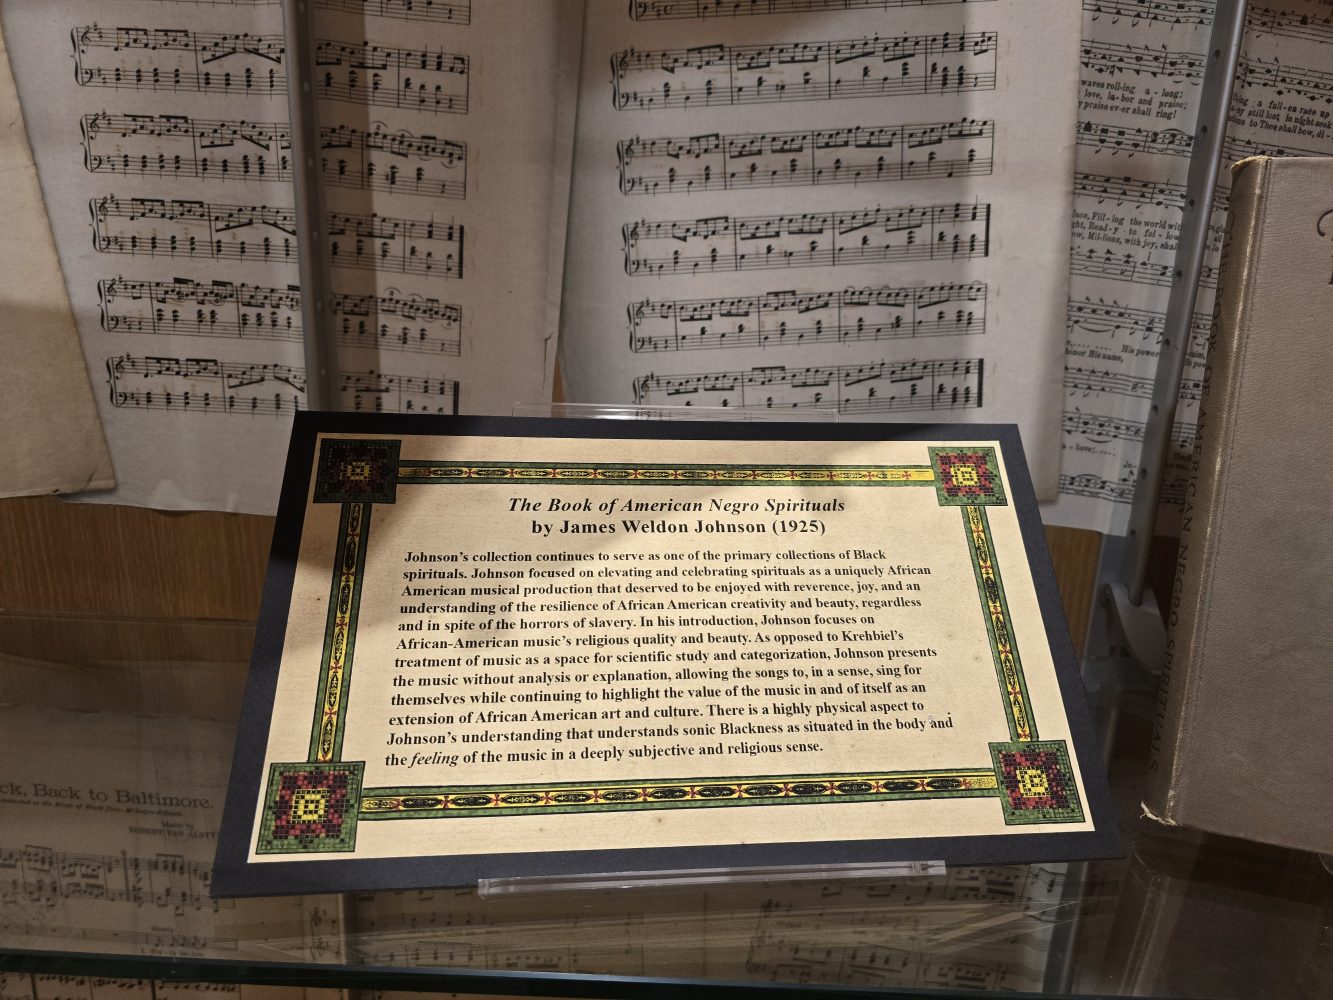 waves roll-ing a - long;
love, la-bor and praise;
praise ev-er shall ring!
a fall-en race up
still lost, in night seek
to Thee shall bow, di -
Fill-ing the world
Read-y to fol - low
Mil-lions, with joy, shal
His power
honor His name,
The Book of American Negro Spirituals
by James Weldon Johnson (1925)
Johnson's collection continues to serve as one of the primary collections of Black
spirituals. Johnson focused on elevating and celebrating spirituals as a uniquely African
American musical production that deserved to be enjoyed with reverence, joy, and an
understanding of the resilience of African American creativity and beauty, regardless
and in spite of the horrors of slavery. In his introduction, Johnson focuses on
African-American music's religious quality and beauty. As opposed to Krehbiel's
treatment of music as a space for scientific study and categorization, Johnson presents
the music without analysis or explanation, allowing the songs to, in a sense, sing for
themselves while continuing to highlight the value of the music in and of itself as an
extension of African American art and culture. There is a highly physical aspect to
Johnson's understanding that understands sonic Blackness as situated in the body and
the feeling of the music in a deeply subjective and religious sense.
BOOK OF AMERICAN NEGRO SPIRITUALS
ck, Back to Baltimore.
ROBERT VAN ALSTY